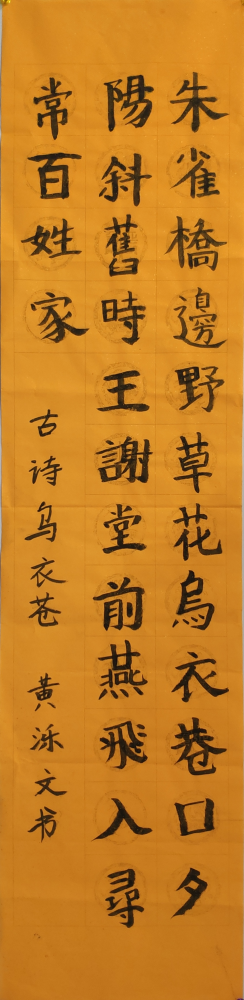 朱雀橋邊野草花烏衣巷口夕
陽斜舊時王謝堂前燕飛入尋
常百姓家
古诗乌衣苍 黄泺文书